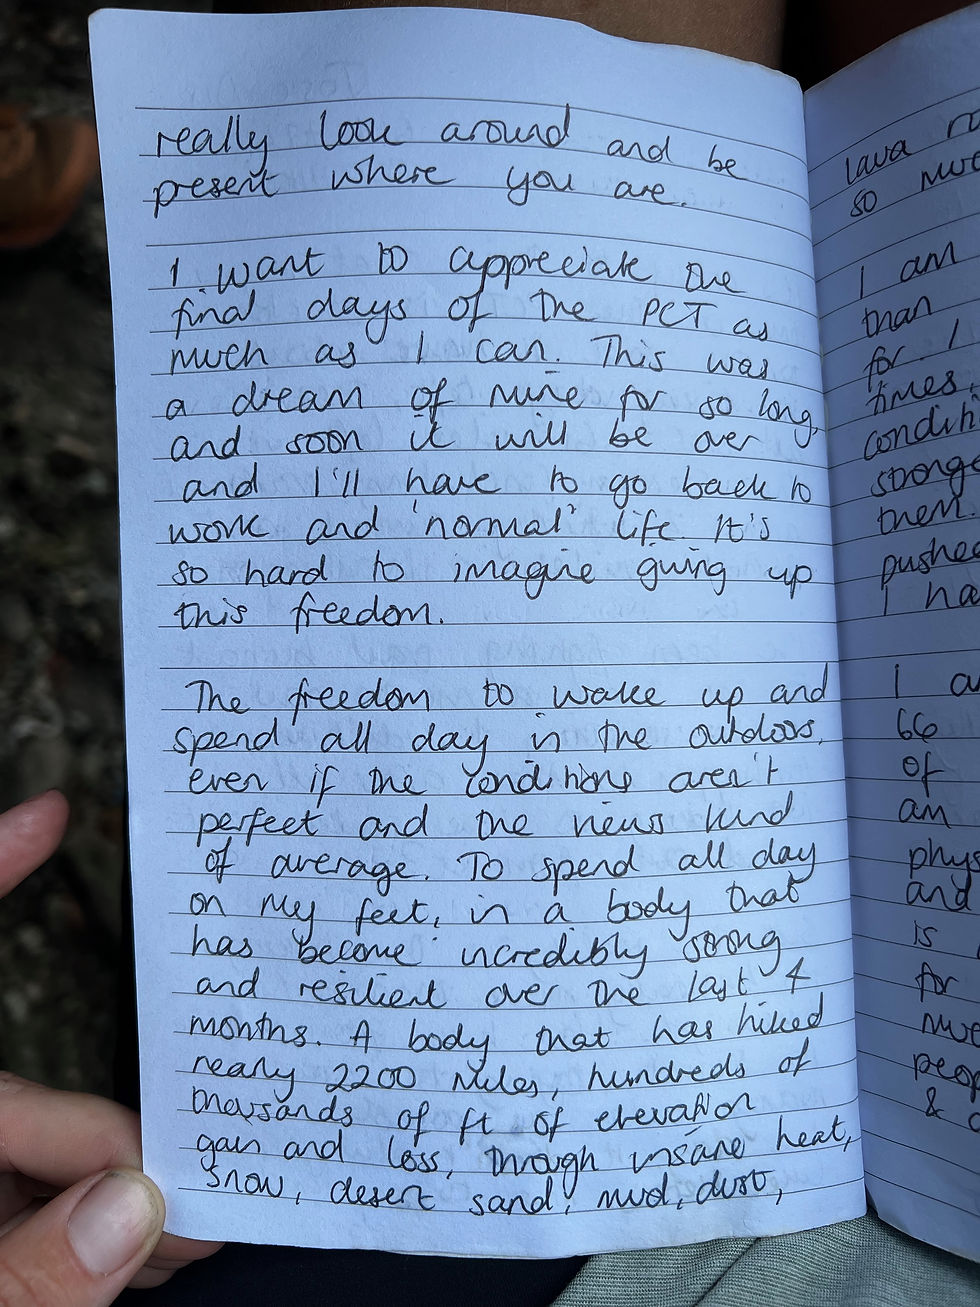 really look around and be
present where you are.
I want to appreciate the
final days of the PCT as
much as I can. This was
a dream of mine for so long,
and soon it will be over
and I'll have to go back to
work and 'normal' life. It's
so hard to imagine giving up
this freedom.
The freedom to wake up and
spend all day in the outdoors,
even if the conditions aren't
perfect and the views kind
of average. To spend all day
on my feet, in a body that
has become incredibly strong
and resilient over the last 4
months. A body that has hiked
nearly 2200 miles, hundreds of
thousands of ft of elevation
gain and loss, through insane heat,
snow, desert sand, mud, dust,
lava
so
I am
than
for. I
times.
them.
pushed
I
I
66
of
am
and
is
for
&